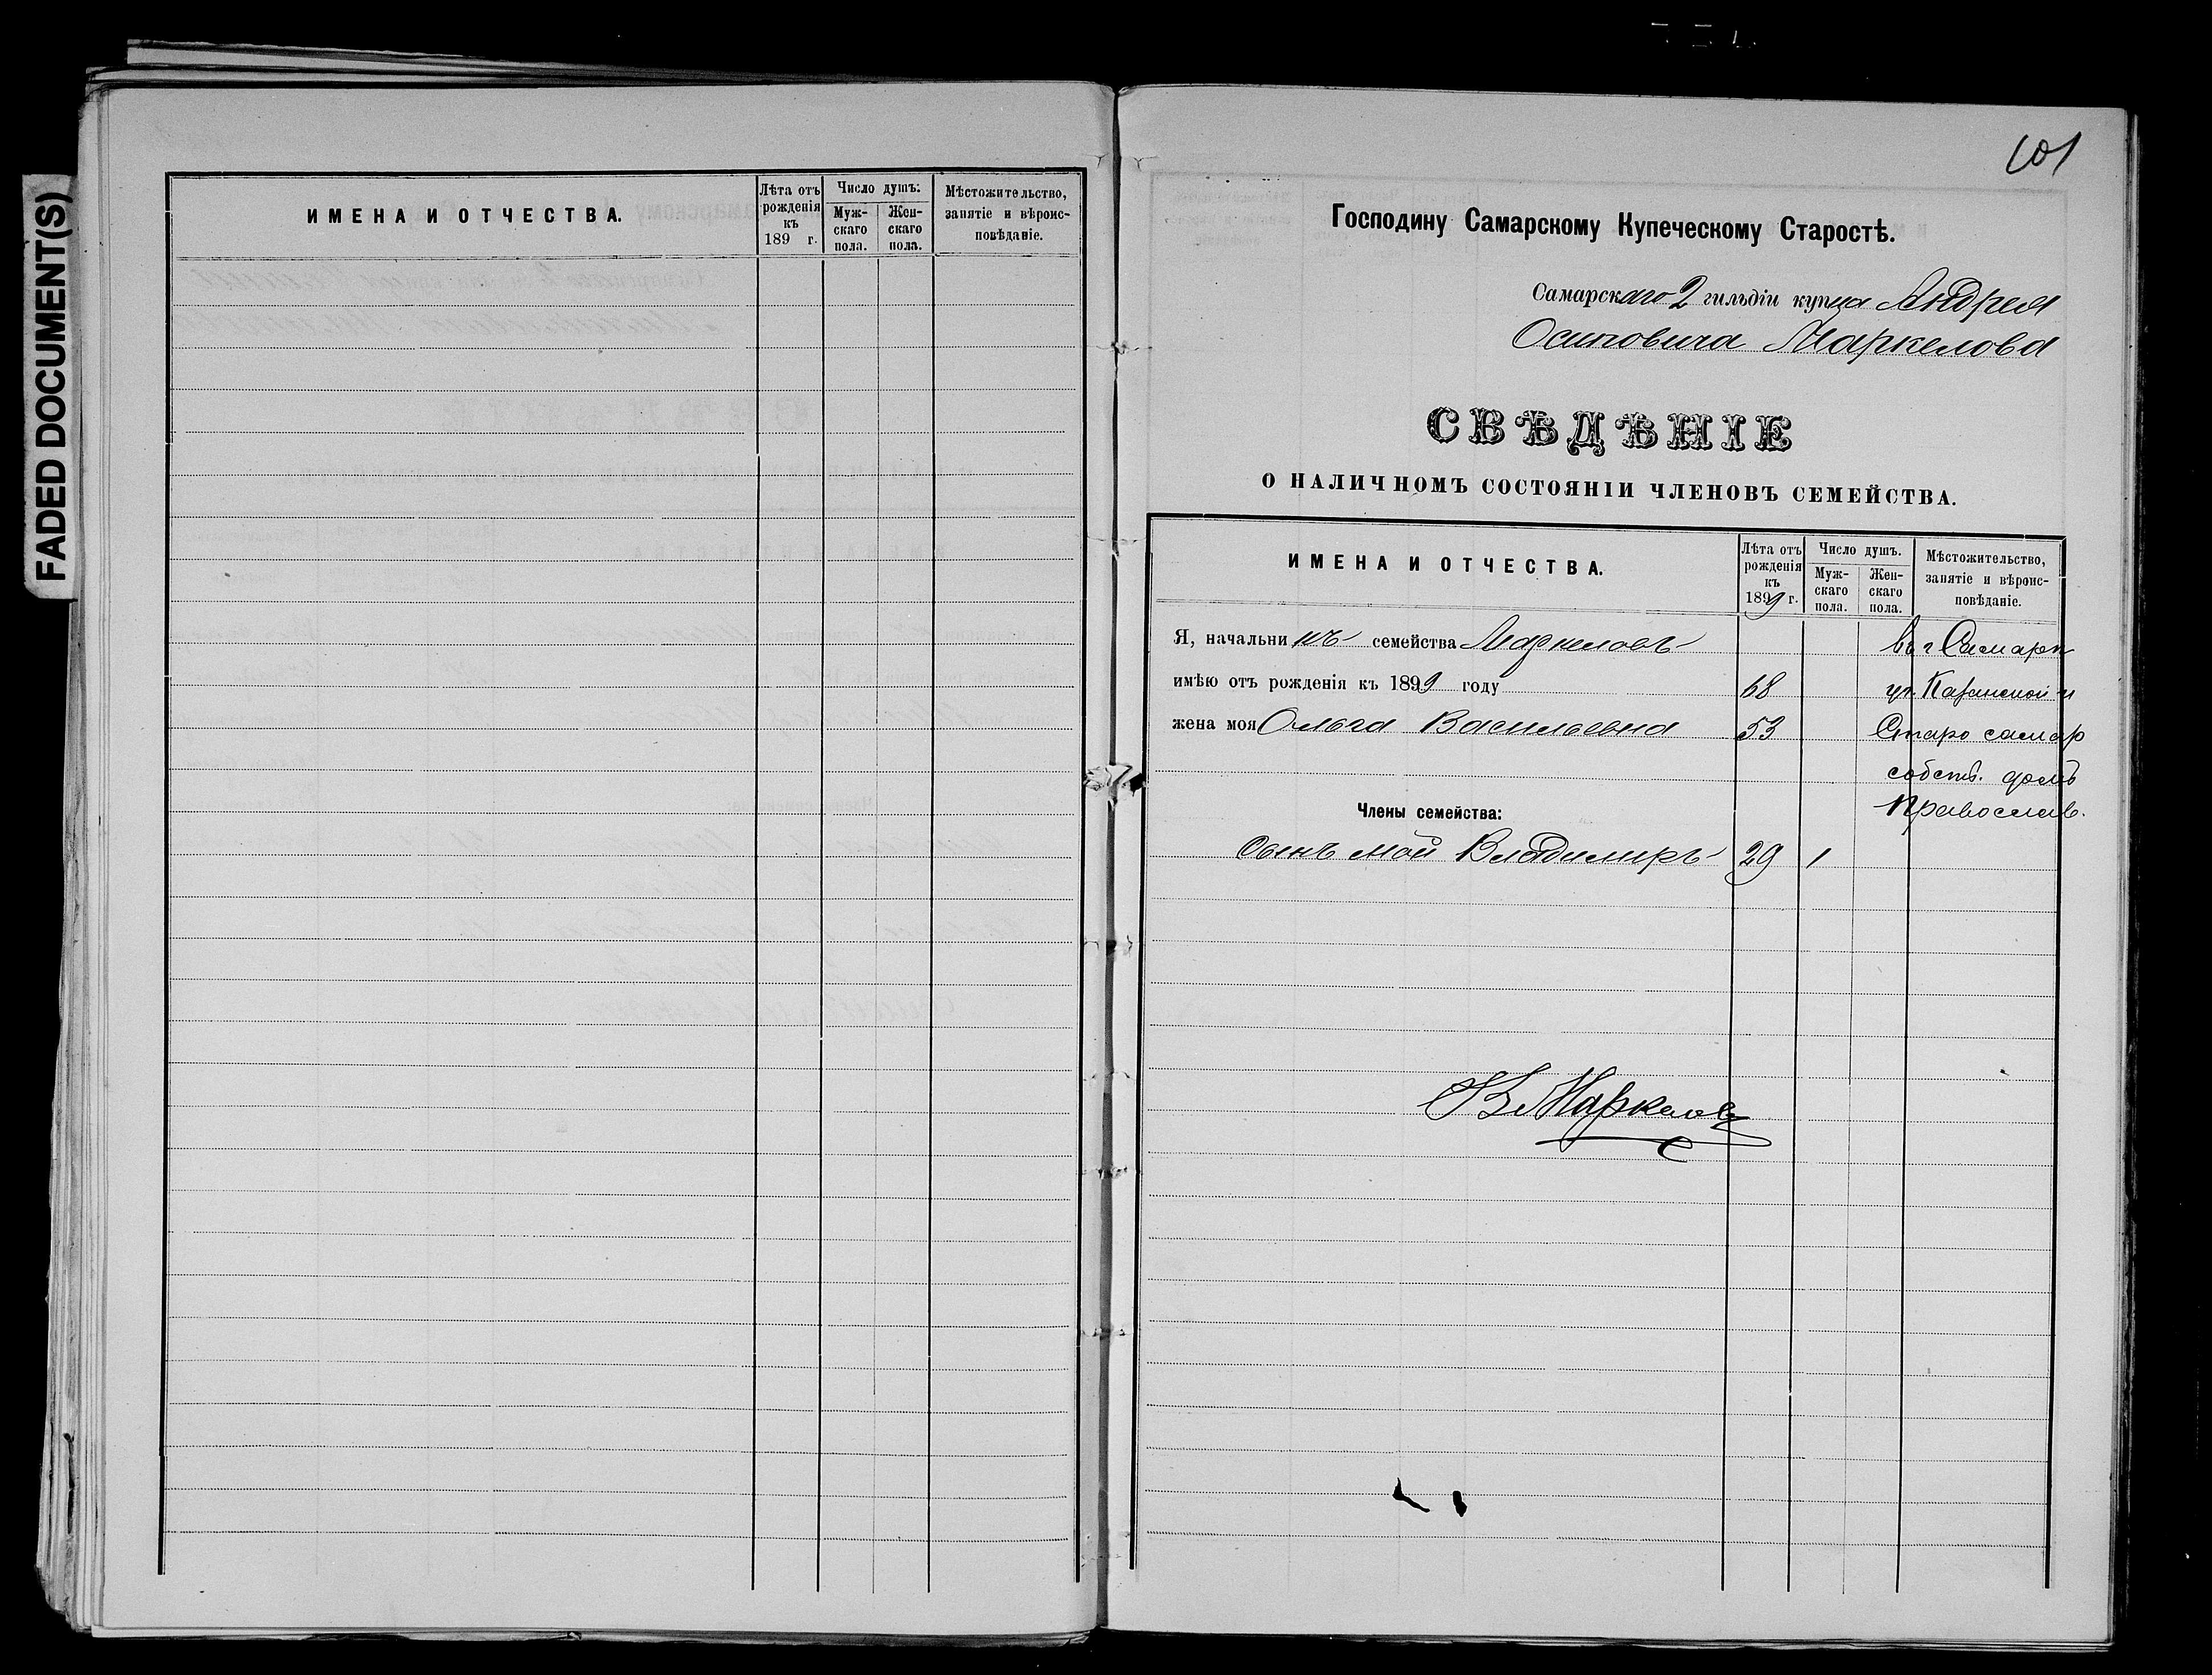 FADED DOCUMENT(S)
ИМЕНА И ОТЧЕСТВА.
Лѣта отъ рожденія къ 189 г.
Число душъ:
Мужскаго пола.
Женскаго пола.
Мѣстожительство, занятіе и вѣроисповѣданіе.
101
Господину Самарскому Купеческому Старостѣ.
Самарскаго 2 гильдіи купца Андрея
Осиповича Маркелова
СВѢДѢНІЕ
О НАЛИЧНОМЪ СОСТОЯНІИ ЧЛЕНОВЪ СЕМЕЙСТВА.
ИМЕНА И ОТЧЕСТВА.
Лѣта отъ рожденія къ 1899 г.
Число душъ.
Мужскаго пола.
Женскаго пола.
Мѣстожительство, занятіе и вѣроисповѣданіе.
Я, начальникъ семейства Маркеловъ въ г Самарѣ
имѣю отъ рожденія къ 1899 году 68 уг. Казанской и
жена моя Ольга Васильевна 53 Старо самар
собств. домъ
Члены семейства: Православ.
Сынъ мой Владимиръ 29 1
В Маркелов